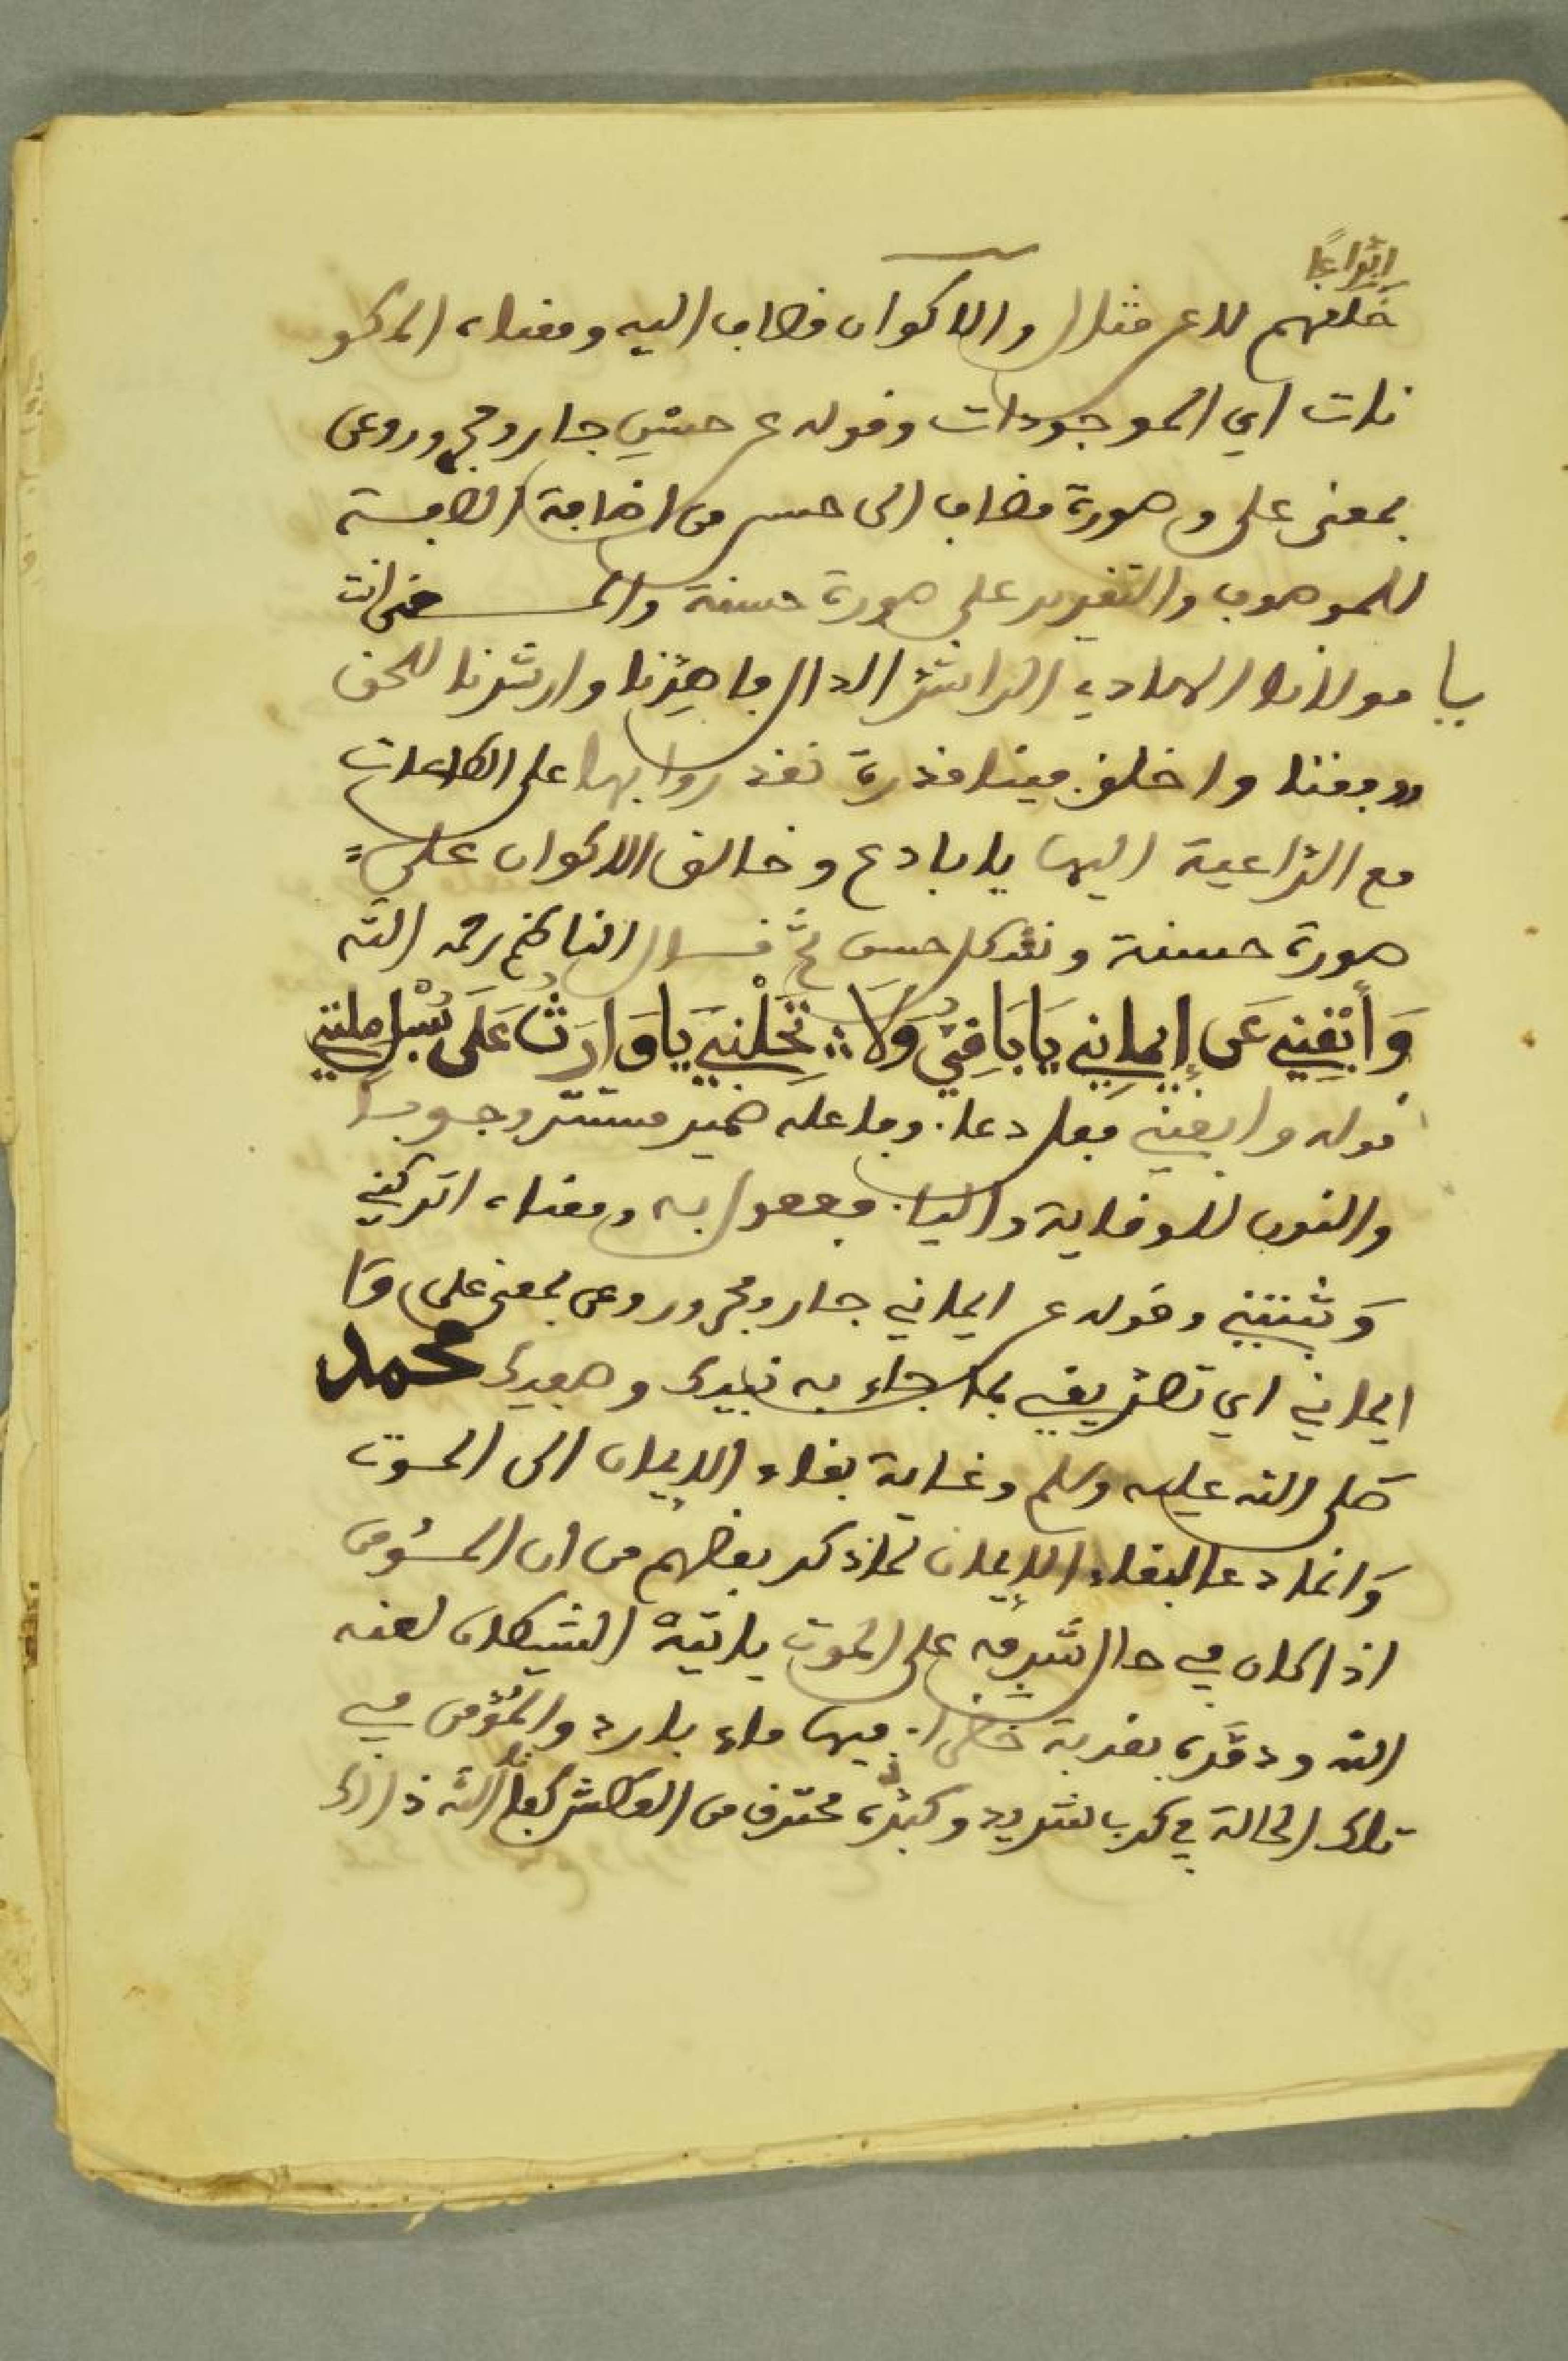 ابداعا
خلقهم لا عن مثال والاكوان مضاف اليه ومعناه المكو
نات اي الموجودات وقوله عن حسن جار ومجرور وعن
بمعنى على وصورة مضاف الى حسن من اضافة الصفة
للموصوف والتقدير على صورة حسنة والمعنى انت
يا مولانا الهادي الراشد الدال فاهدنا وارشدنا للحق
ووفقنا واخلق فينا قدرة نقدر بها على الطاعات
مع الداعية اليها يا بادع وخالق الاكوان على
صورة حسنة وتقدير حسن ثم قال الناظم رحمه الله
وَأَبْقِنِي عَن إِيمَانِي يَا بَاقِي وَلَا تَخَلْنِي يَا وَارِثُ عَلَى سُبْلِ ملتي
قوله وابقني فعل دعاء وفاعله ضمير مستتر وجوبا
والنون للوقاية والياء مفعول به ومعناه اتركني
وَثبتني وقوله عن ايماني جار ومجرور وعن بمعنى على وَا
ايماني اي تصديقي بما جاء به نبيك وصفيك محمد
صَلى الله عليه وسلم وغاية بقاء الإيمان الى الموت
وَانما دعا ببقاء الإيمان لما ذكر بعضهم من ان المؤمن
اذا كان في حال شرفه على الموت ياتيه الشيطان لعنه
الله ودمَّره بقربة خضراء فيها ماء بارد والمؤمن في
تلك الحالة في كرب شديد وكبده محترق من العطش كفانا الله ذالك